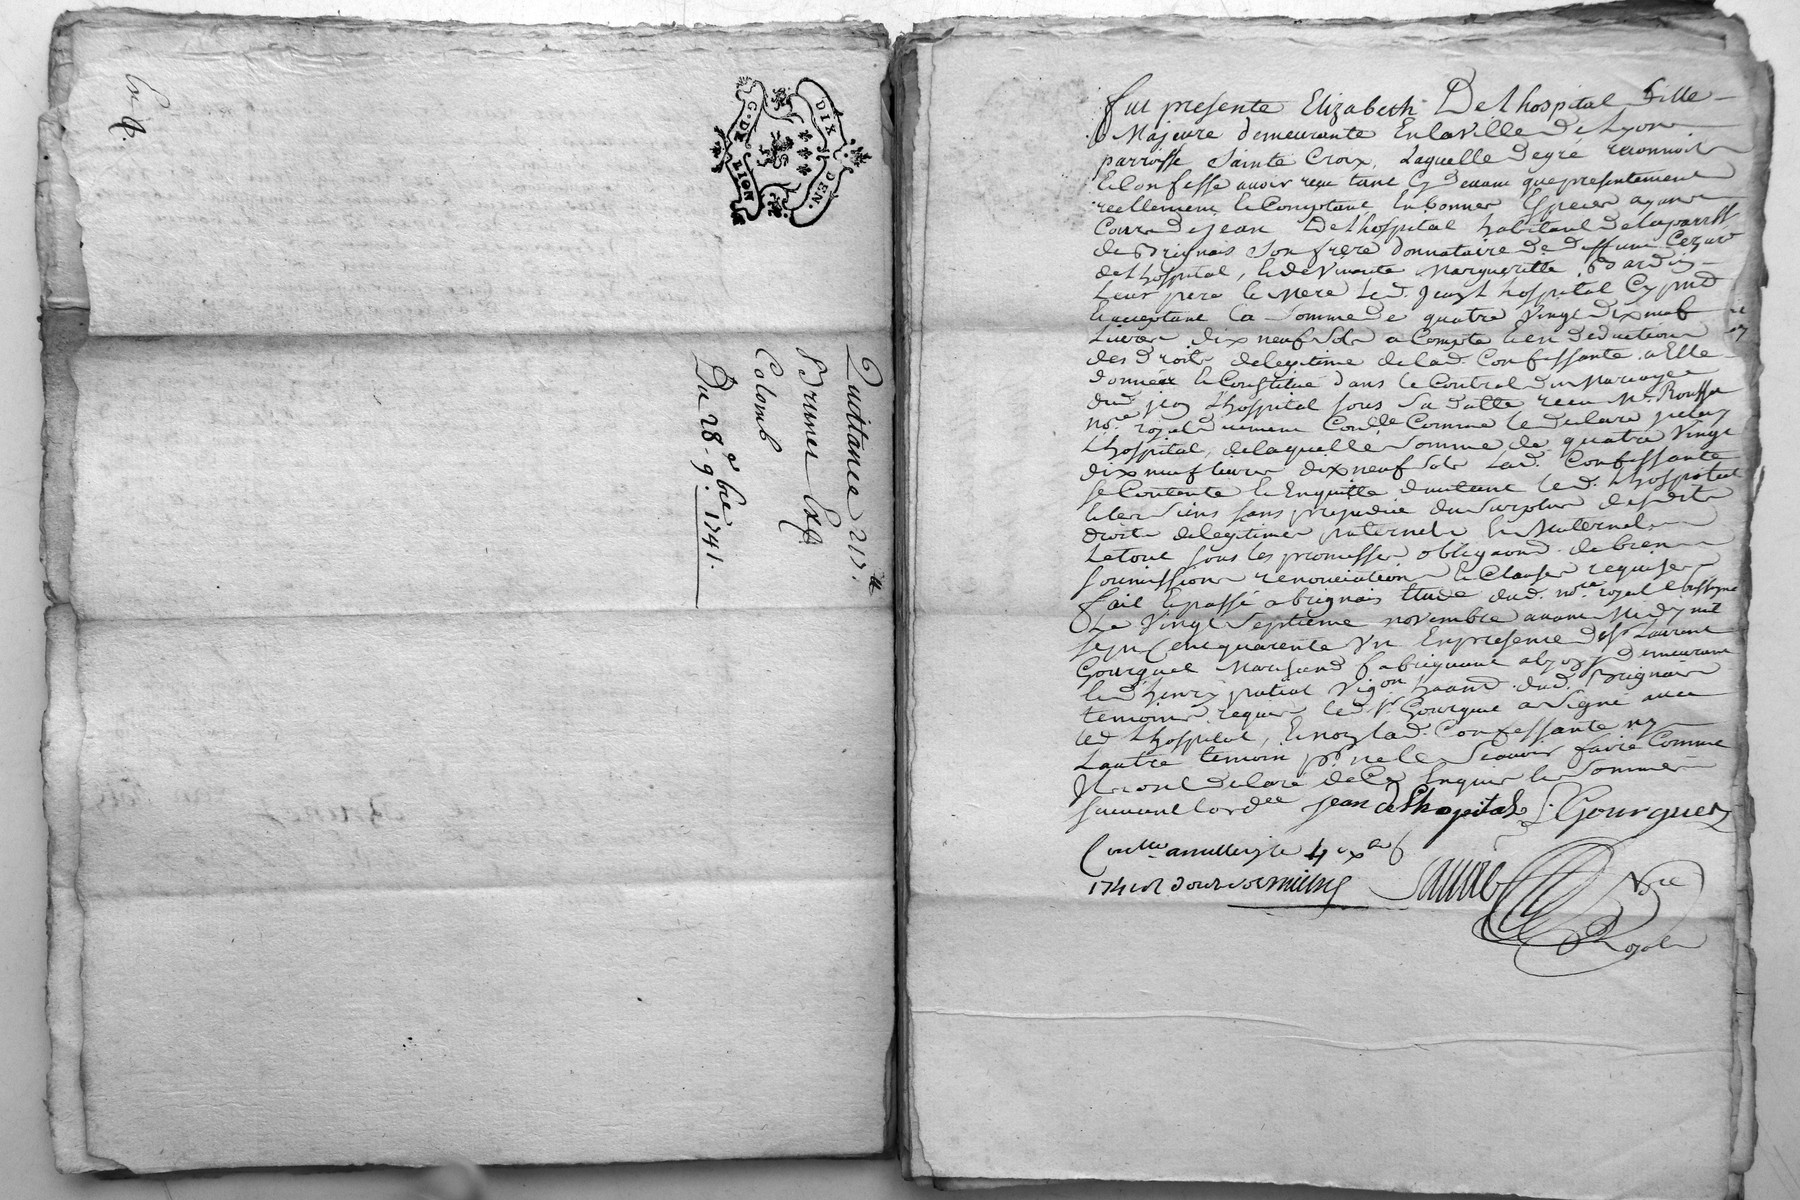 En q.
G. DE LION
DIX DEN.
Quittance 217.#
Brunier
Colomb
Du 28.e 9.bre 1741.
fut presente Elizabeth Delhospital fille
Majeure demeurante En la ville de Lyon
parroisse Sainte Croix, Laquelle degré reconnoit
Et Confesse avoir recu tant Cy devant que presentement
reellement Et Comptant En bonnes Especes ayant
Cours de jean Delhospital habitant de la parroisse
de Brignais son frere donnataire de deffunt Cezard
delhospital, Et de vivante Margueritte Bardin
Leurs pere Et Mere Led. Jean Lhospital Cy pnt
Et acceptant la somme de quatre vingt dix neuf
Livres dix neuf sols a Compte Et en deduction
des droits de legitime de lad. Confessante a Elle
donnéz Et Constitué dans le Contrat de Mariage
dud. jean Lhospital sous sa datte recu Me. Rousset
no.re royal duement Con.llé Comme le declare jean
Lhospital, de laquelle somme de quatre vingt
dix neuf livres dix neuf sols Lad. Confessante
se Contente Et Enquitte d'autant led. Lhospital
Et les siens sans prejudice du surplus desdits
droits de legitimes paternels Et Maternels
Le tout sous les promesses obligaons. de biens
soumissions renonciations Et Clauses requises
fait Et passé a brignais Etude dud. no.re royal soussigné
Le vingt septieme novembre avant Midy mil
sept Cent quarente un En presence de sr. Laurent
Gourguet Marchand fabriquant a Lyon y demeurant
Et d'henry patiat vig.on habitant dud. Brignais
temoins requis led. sr. Gourguet a signé avec
led. Lhospital, Et non lad. Confessante ny
L'autre temoin pr. ne le scavoir faire Comme
Ils ont declaré de Ce Enquis Et sommés
suivant lord.ce jean delhospital L. Gourguet
Con.llé a millery le 4 x.bre
1741 rt douze sols
Sauvé Nre
Royal